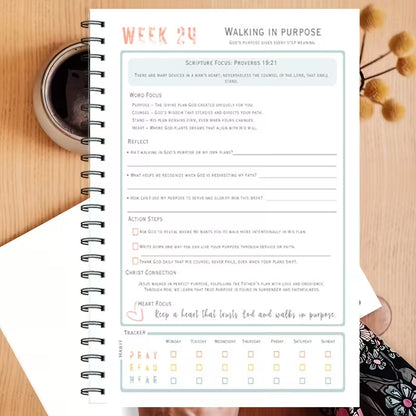 WEEK 24
WALKING IN PURPOSE
GOD'S PURPOSE GIVES EVERY STEP MEANING.
SCRIPTURE FOCUS: PROVERBS 19:21
THERE ARE MANY DEVICES IN A MAN'S HEART; NEVERTHELESS THE COUNSEL OF THE LORD, THAT SHALL
STAND.
WORD FOCUS
PURPOSE – THE DIVINE PLAN GOD CREATED UNIQUELY FOR YOU.
COUNSEL – GOD'S WISDOM THAT STEADIES AND DIRECTS YOUR PATH.
STAND – HIS PLAN REMAINS FIRM, EVEN WHEN YOURS CHANGES.
HEART – WHERE GOD PLANTS DREAMS THAT ALIGN WITH HIS WILL.
REFLECT
• AM I WALKING IN GOD'S PURPOSE OR MY OWN PLANS?
• WHAT HELPS ME RECOGNIZE WHEN GOD IS REDIRECTING MY PATH?
• HOW CAN I USE MY PURPOSE TO SERVE AND GLORIFY HIM THIS WEEK?
ACTION STEPS
ASK GOD TO REVEAL WHERE HE WANTS YOU TO WALK MORE INTENTIONALLY IN HIS PLAN.
WRITE DOWN ONE WAY YOU CAN LIVE YOUR PURPOSE THROUGH SERVICE OR FAITH.
THANK GOD DAILY THAT HIS COUNSEL NEVER FAILS, EVEN WHEN YOUR PLANS SHIFT.
CHRIST CONNECTION
JESUS WALKED IN PERFECT PURPOSE, FULFILLING THE FATHER'S PLAN WITH LOVE AND OBEDIENCE.
THROUGH HIM, WE LEARN THAT TRUE PURPOSE IS FOUND IN SURRENDER AND FAITHFULNESS.
HEART FOCUS
Keep a heart that trusts God and walks in purpose.
TRACKER
HABIT
MONDAY TUESDAY WEDNESDAY THURSDAY FRIDAY SATURDAY SUNDAY
PRAY
READ
HEAR